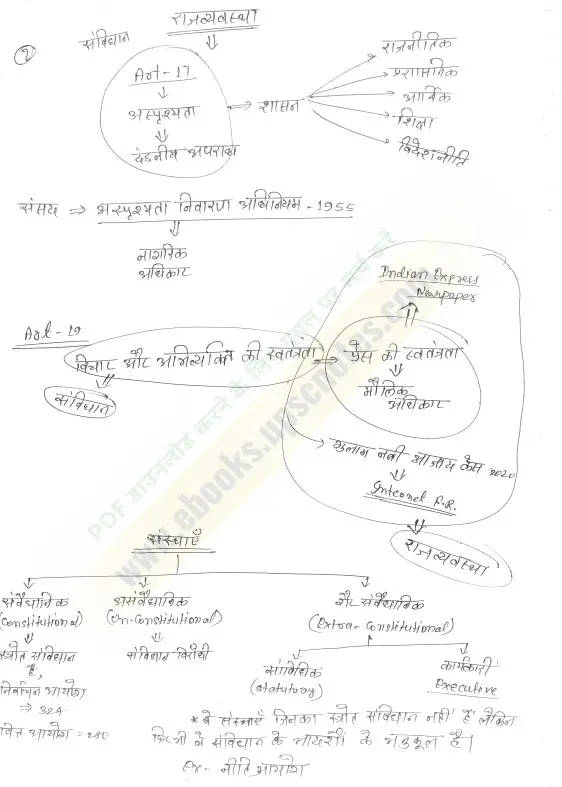 राजव्यवस्था
संविधान
①
Art-17
अस्पृश्यता
दंडनीय अपराध
शासन
राजनीतिक
प्रशासनिक
आर्थिक
शिक्षा
विदेशनीति
संसद ⇒ अस्पृश्यता निवारण अधिनियम - 1955
नागरिक
अधिकार
Indian Express
Newspaper
Art-19
विचार और अभिव्यक्ति की स्वतंत्रता ⇒ प्रेस की स्वतंत्रता
संविधान
मौलिक
अधिकार
गुलाम नबी आजाद केस 2020
Internet F.R.
राजव्यवस्था
संस्थाएँ
संवैधानिक
(Constitutional)
स्त्रोत संविधान
है,
निर्वाचन आयोग
⇒ 324
वित्त आयोग = 280
असंवैधानिक
(Un-Constitutional)
संविधान विरोधी
गैर संवैधानिक
(Extra-Constitutional)
सांविधिक
(Statutory)
कार्यकारी
Executive
* वे संस्थाएँ जिनका स्त्रोत संविधान नहीं है लेकिन
फिर भी वे संविधान के आदर्शों के अनुकूल है।
Ex- नीति आयोग
PDF डाउनलोड करने के लिए गूगल पर सर्च करें
www.ebooks.upscnotes.com